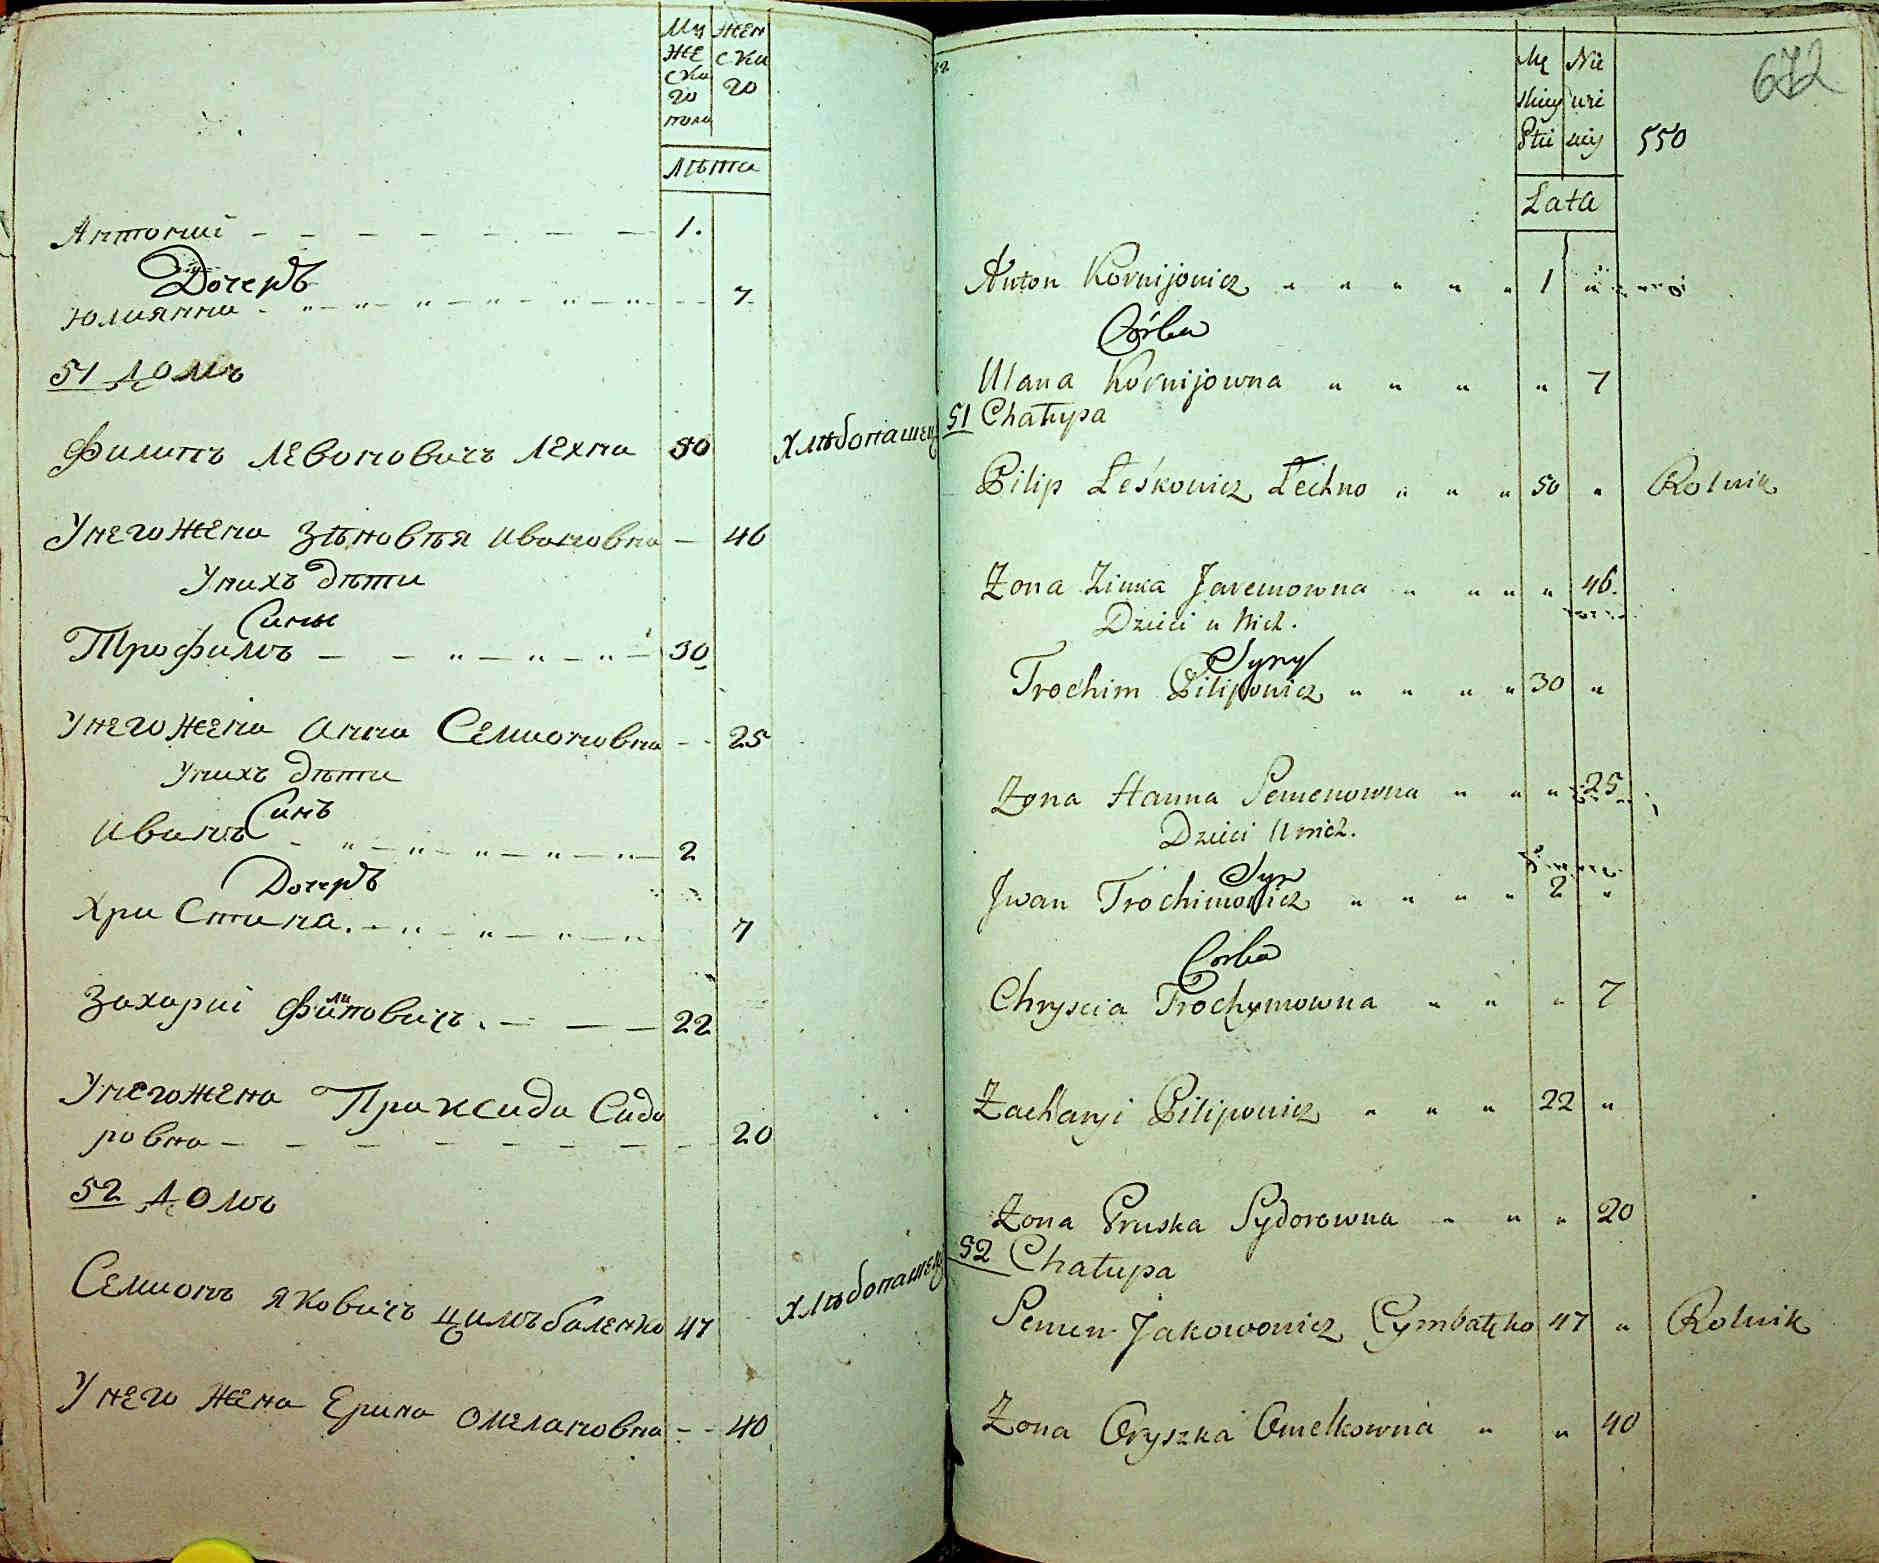 Му Жен
же ска
ска го
го
пола
Лѣта
Антоній 1.
Дочерь
Юлиянна 7
51 Домъ
Филипъ Левоновичъ Лехна 50 Хлѣбопашец
У него жена Зѣновѣя Ивановна 46
У нихъ дѣти
Сины
Трофимъ 30
У него жена Анна Семионовна 25
У нихъ дѣти
Синъ
Иванъ 2
Дочерь
Христина 7
Захарій Филиповичъ 22
У него жена Праксида Сидо
ровна 20
52 Домъ
Семионъ Яковичъ Цимъбаленко 47 Хлѣбопашец
У него жена Ерина Омелановна 40
672
Mę Nie
skiey
Płci
550
Lata
Anton Kornijowicz " " " " " 1 "
Córka
Ulana Kornijowna " " " " 7
51 Chałupa
Pilip Leśkowicz Lechno " " " 50 " Rolnik
Żona Zinka Jaremowna " " " " 46.
Dzieci u Nich.
Syny
Trochim Pilipowicz " " " " 30 "
Żona Hanna Semenowna " " " 25
Dzieci U nich.
Syn
Jwan Trochimowicz " " " " 2 "
Corka
Chryscia Trochymowna " " " 7
Zacharyi Pilipowicz " " " 22 "
Żona Pruska Sydorowna " " " 20
52 Chałupa
Semen Jakowowicz Cymbałko 47 " Rolnik
Żona Oryszka Omelkowna " " 40